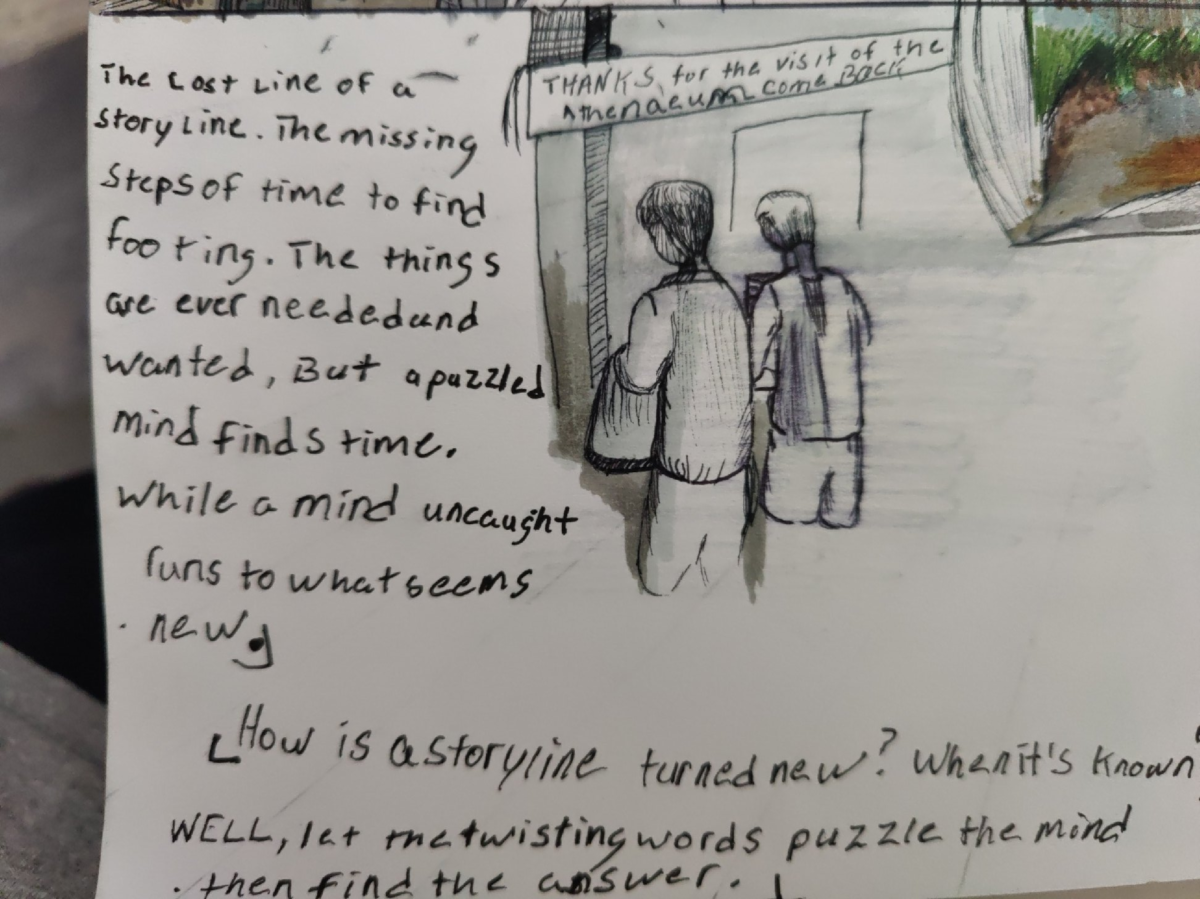 The Lost Line of a
story Line. The missing
steps of time to find
footing. The things
are ever needed und
wanted, But a puzzled
mind finds time.
While a mind uncaught
runs to what seems
new.
THANKS, for the visit of the
Athenaeum come BACK
How is a storyline turned new? When it's known
WELL, let the twisting words puzzle the mind
then find the answer.